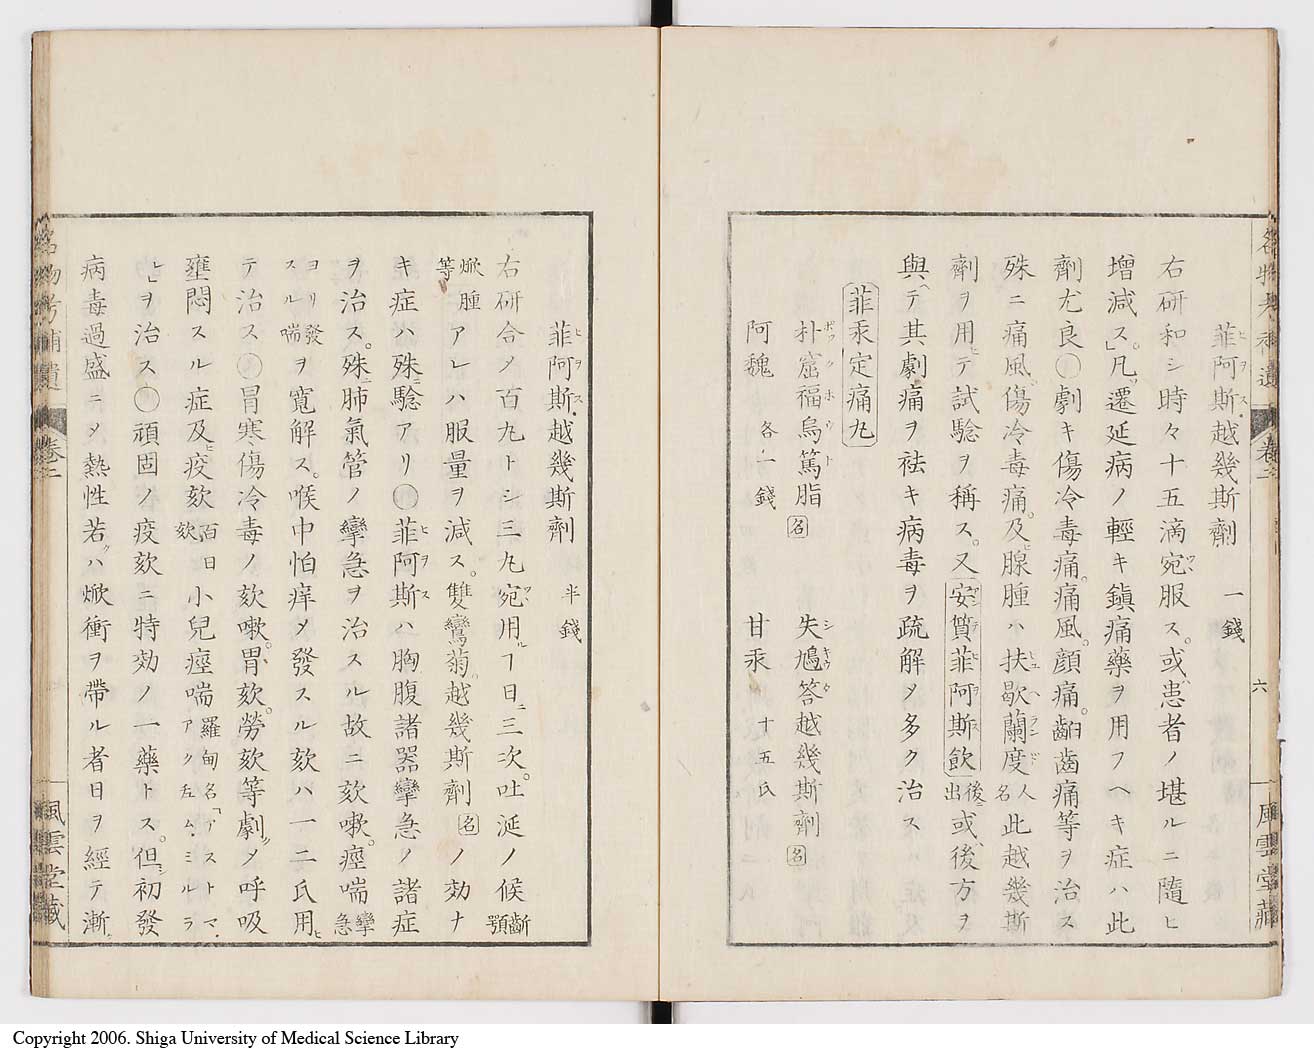 名物考補遺 卷二 六 風雲堂藏
菲阿斯越幾斯劑 一錢
右研和シ時々十五滴宛服ス。或患者ノ堪ルニ隨ヒ
增減ス」凡ソ遷延病ノ輕キ鎮痛藥ヲ用フヘキ症ハ此
劑尤良○劇キ傷冷毒痛。痛風。顔痛。齦齒痛等ヲ治ス
殊ニ痛風傷冷毒痛。及ヒ腺腫ハ扶歇蘭度人名此越幾斯
劑ヲ用ヒテ試驗ヲ稱ス。又安質菲阿斯飲後ニ出或ハ後方ヲ
與ヘテ其劇痛ヲ袪キ病毒ヲ疏解メ多ク治ス
菲汞定痛丸
朴窟福烏篤脂名 失鳩答越幾斯劑名
阿魏 各一錢 甘汞 十五氏
菲阿斯越幾斯劑 半錢
右研合メ百九トシ三丸宛用ルヿ日ニ三次。吐涎ノ候齗顎
焮腫等アレハ服量ヲ減ス。雙鸞菊越幾斯劑名ノ効ナ
キ症ハ殊ニ驗アリ○菲阿斯ハ胸腹諸器攣急ノ諸症
ヲ治ス。殊ニ肺氣管ノ攣急ヲ治スル故ニ欬嗽。痙喘攣急
ヨリ發スル喘ヲ寬解ス。喉中怕痒メ發スル欬ハ一二氏用ヒ
テ治ス○冒寒傷冷毒ノ欬嗽。胃欬。勞欬等劇メ呼吸
壅悶スル症及ヒ疫欬百日欬小兒痙喘羅甸名「アストマ・アクキュム・ミルラ
レ」ヲ治ス○頑固ノ疫欬ニ特効ノ一藥トス。但シ初發
病毒過盛ニメ熱性若クハ焮衝ヲ帶ル者日ヲ經テ漸
名物考補遺 卷二 風雲堂藏
Copyright 2006. Shiga University of Medical Science Library